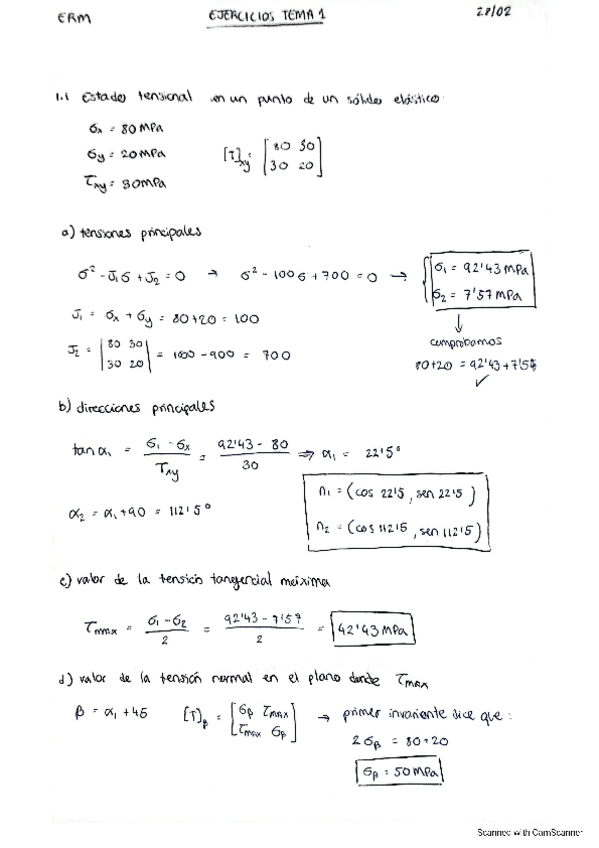 ERM EJERCICIOS TEMA 1 28/02
1.1 Estado tensional en un punto de un sólido elástico:
σx = 80 MPa
σy = 20 MPa [T]xy = [80 30
30 20]
τxy = 30 MPa
a) tensiones principales
σ² - J₁σ + J₂ = 0 → σ² - 100σ + 700 = 0 → { σ₁ = 92'43 MPa
σ₂ = 7'57 MPa
J₁ = σx + σy = 80+20 = 100
↓
comprobamos
J₂ = |80 30
30 20| = 1600 - 900 = 700
80+20 = 92'43 + 7'57
✓
b) direcciones principales
tan α₁ = (σ₁ - σx) / τxy = (92'43 - 80) / 30 ⇒ α₁ = 22'5°
α₂ = α₁ + 90 = 112'5°
n₁ = (cos 22'5, sen 22'5)
n₂ = (cos 112'5, sen 112'5)
c) valor de la tensión tangencial máxima
τmax = (σ₁ - σ₂) / 2 = (92'43 - 7'57) / 2 = 42'43 MPa
d) valor de la tensión normal en el plano donde τmax
β = α₁ + 45 [T]β = [σβ τmax
τmax σβ] → primer invariante dice que:
2σβ = 80+20
σβ = 50 MPa
Scanned with CamScanner